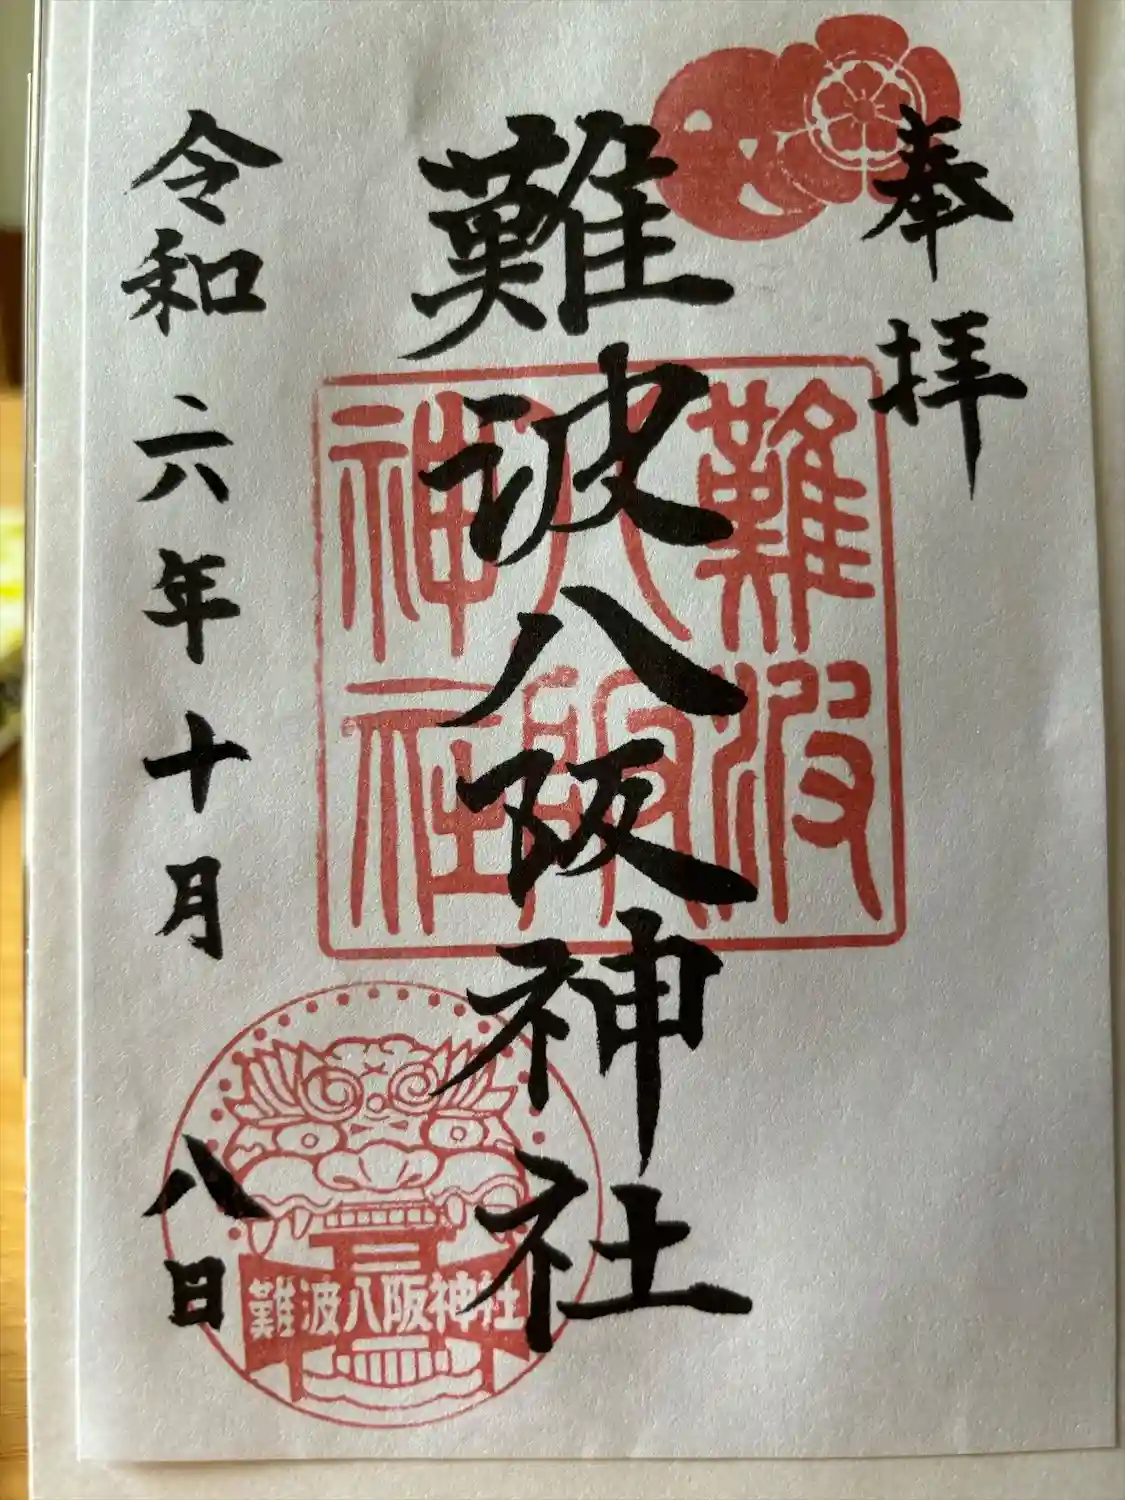 奉拝
難波八阪神社
令和六年十月八日
難波
八阪
神社
難波八阪神社